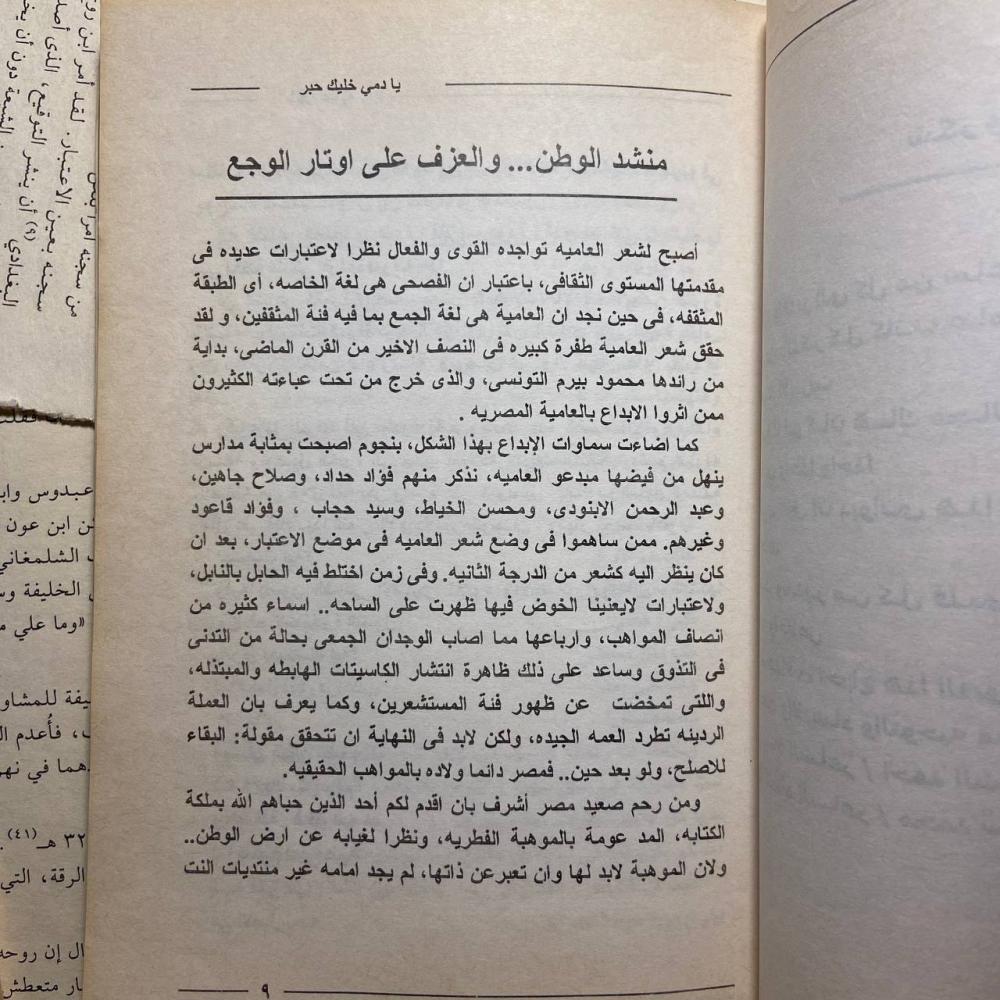 يا دمي خليك حبر
منشد الوطن... والعزف على اوتار الوجع
أصبح لشعر العاميه تواجده القوى والفعال نظرا لاعتبارات عديده فى
مقدمتها المستوى الثقافى، باعتبار ان الفصحى هى لغة الخاصه، أى الطبقة
المثقفه، فى حين نجد ان العامية هى لغة الجمع بما فيه فئة المثقفين، و لقد
حقق شعر العامية طفرة كبيره فى النصف الاخير من القرن الماضى، بداية
من رائدها محمود بيرم التونسى، والذى خرج من تحت عباءته الكثيرون
ممن اثروا الابداع بالعامية المصريه .
كما اضاءت سماوات الإبداع بهذا الشكل، بنجوم اصبحت بمثابة مدارس
ينهل من فيضها مبدعو العاميه، نذكر منهم فؤاد حداد، وصلاح جاهين،
وعبد الرحمن الابنودى، ومحسن الخياط، وسيد حجاب ، وفؤاد قاعود
وغيرهم. ممن ساهموا فى وضع شعر العاميه فى موضع الاعتبار، بعد ان
كان ينظر اليه كشعر من الدرجة الثانيه. وفى زمن اختلط فيه الحابل بالنابل،
ولاعتبارات لايعنينا الخوض فيها ظهرت على الساحه.. اسماء كثيره من
انصاف المواهب، وارباعها مما اصاب الوجدان الجمعى بحالة من التدنى
فى التذوق وساعد على ذلك ظاهرة انتشار الكاسيتات الهابطه والمبتذله،
واللتى تمخضت عن ظهور فئة المستشعرين، وكما يعرف بان العملة
الردينه تطرد العمه الجيده، ولكن لابد فى النهاية ان تتحقق مقولة: البقاء
للاصلح، ولو بعد حين.. فمصر دائما ولاده بالمواهب الحقيقيه.
ومن رحم صعيد مصر أشرف بان اقدم لكم أحد الذين حباهم الله بملكة
الكتابه، المد عومة بالموهبة الفطريه، ونظرا لغيابه عن ارض الوطن..
ولان الموهبة لابد لها وان تعبرعن ذاتها، لم يجد امامه غير منتديات النت
٩
من سجنه
سجنه بعين الاعتبار. لقد أمر ابن
(٩) أن ينشر التوقيع، الذى
البغدادي الشيعة دون أن
عبدوس
ابن عون
الشلمغاني
الخليفة
«وما علي
للمشاو
، فأُعدم
في
٣٢ هـ(٤١)
الرقة، التي
إن روحه
متعطش